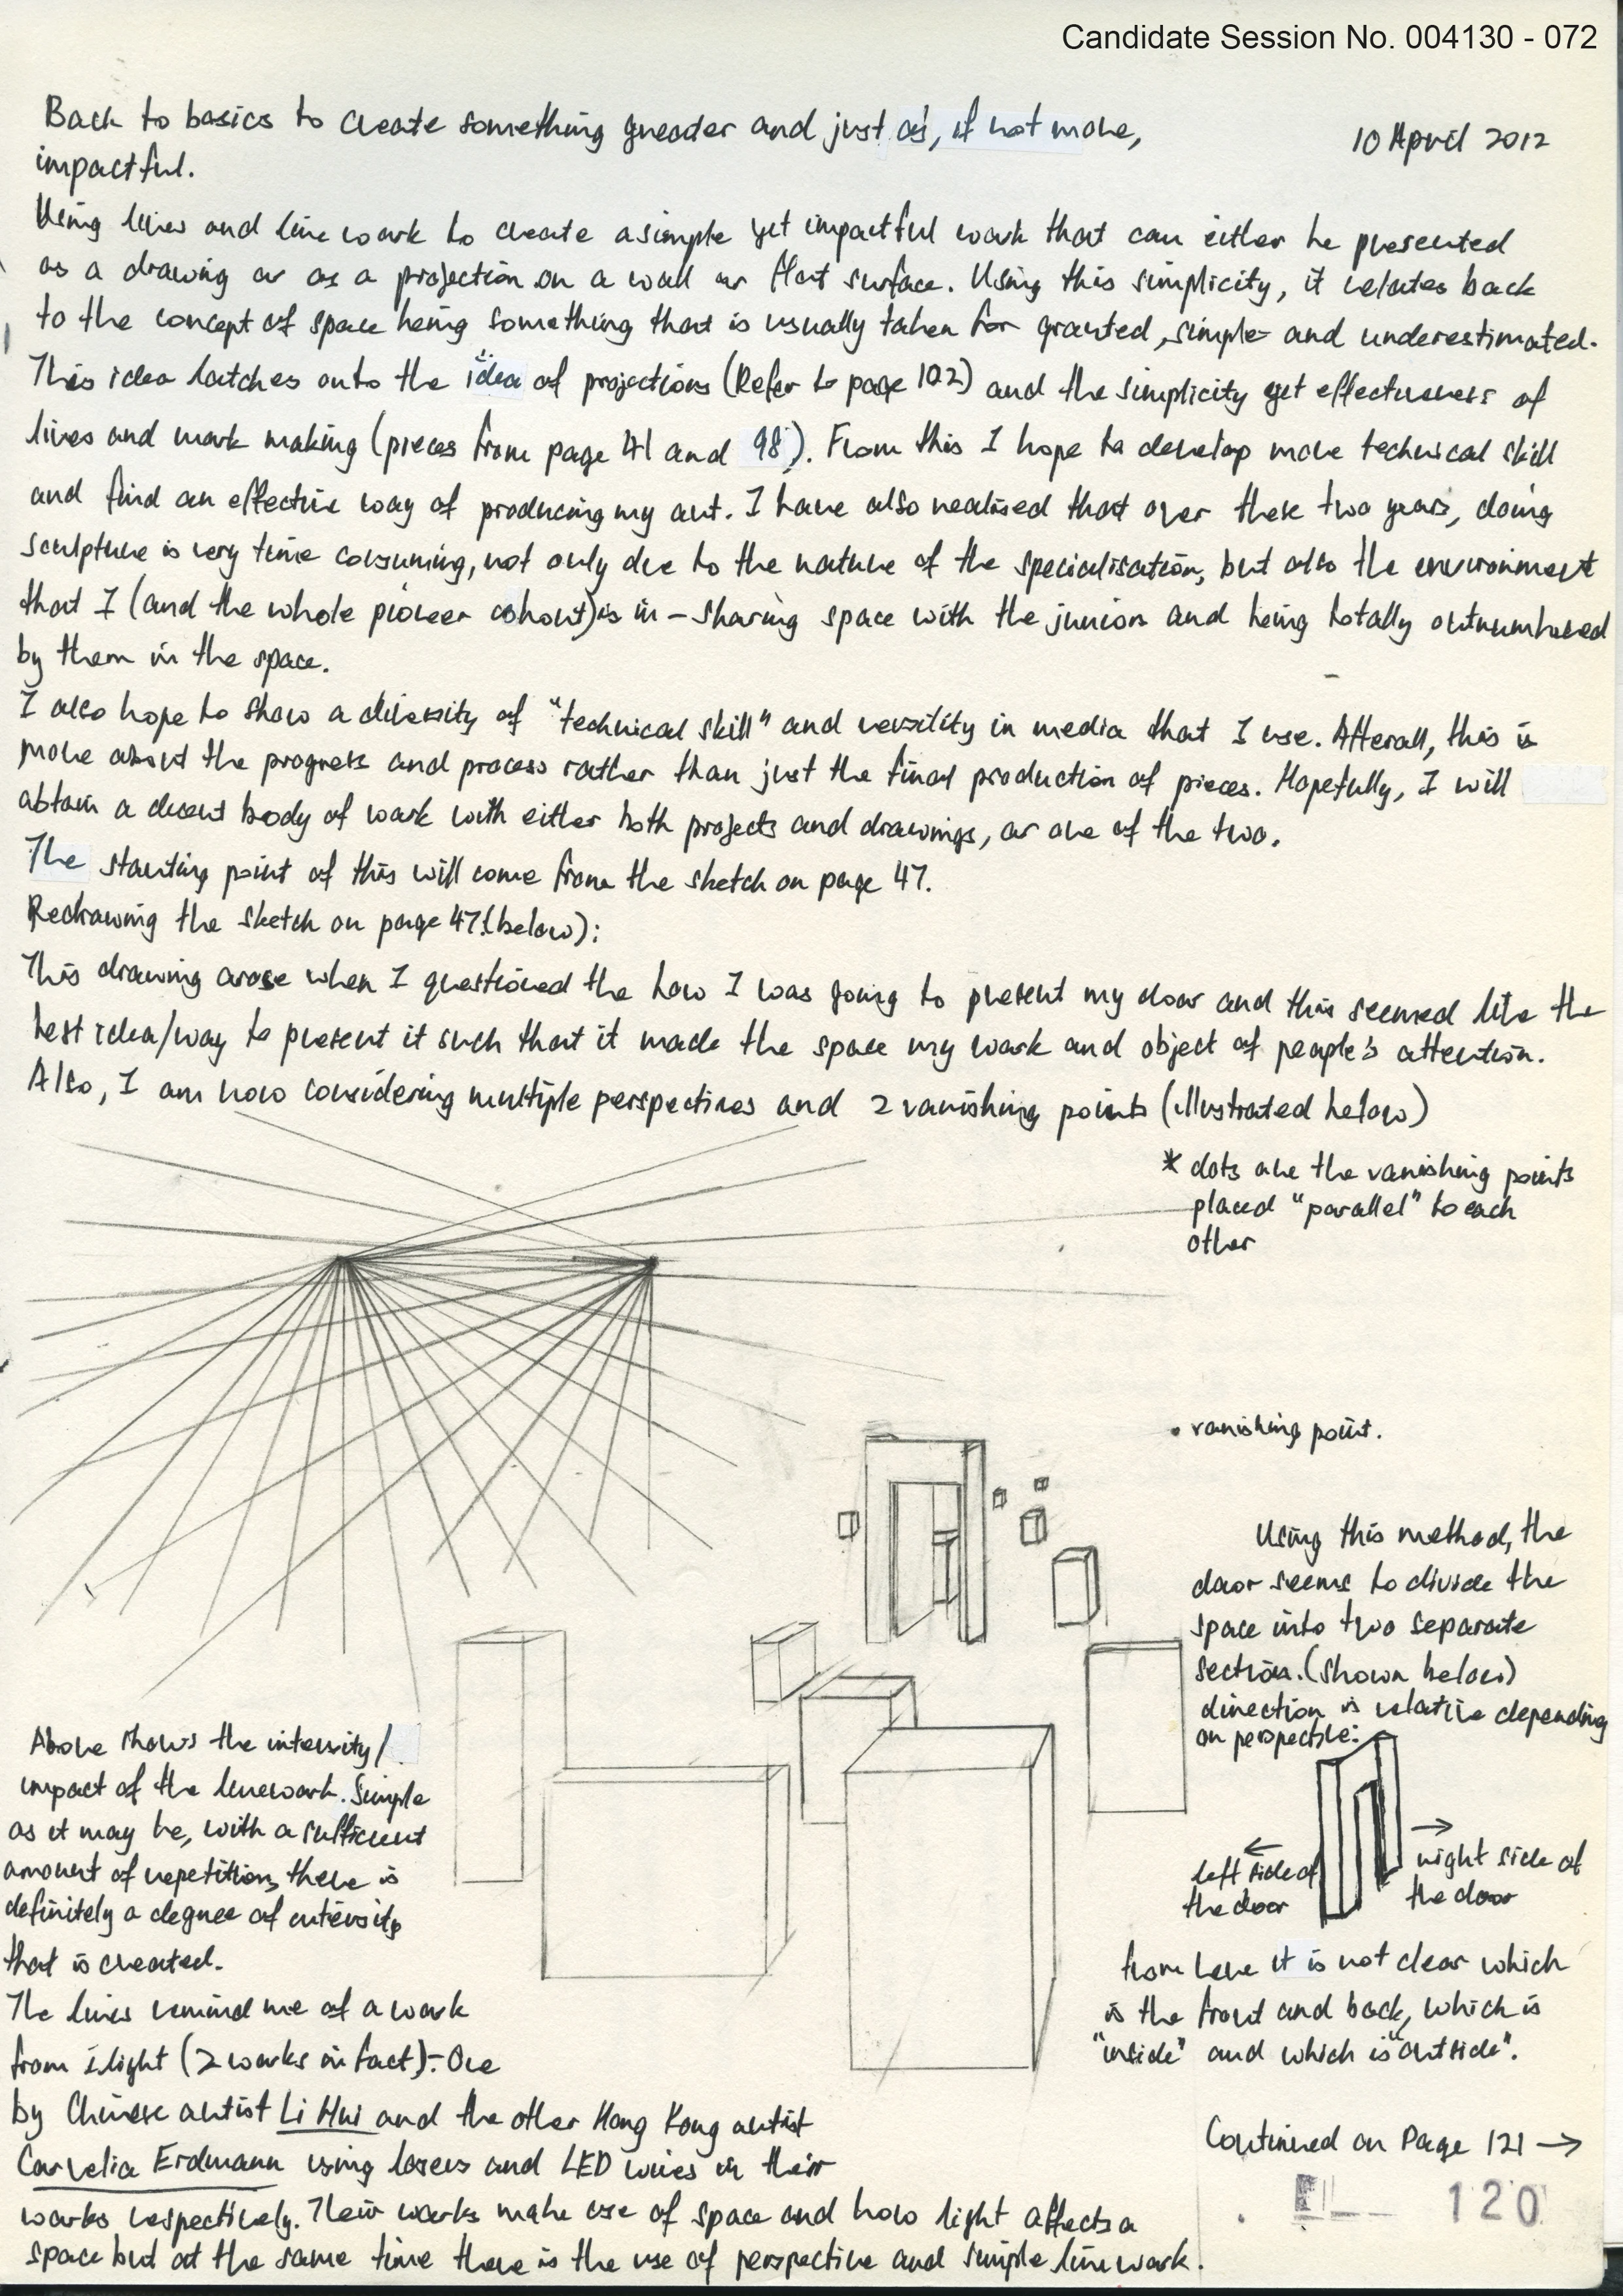 Candidate Session No. 004130 - 072
Back to basics to create something greater and just as, if not more,
10 April 2012
impactful.
Using lines and line work to create a simple yet impactful work that can either be presented
as a drawing or as a projection on a wall or flat surface. Using this simplicity, it relates back
to the concept of space being something that is usually taken for granted, simple and underestimated.
This idea latches onto the idea of projections (Refer to page 102) and the simplicity yet effectiveness of
lines and mark making (pieces from page 41 and 98). From this I hope to develop more technical skill
and find an effective way of producing my art. I have also realised that over these two years, doing
sculpture is very time consuming, not only due to the nature of the specialisation, but also the environment
that I (and the whole pioneer cohort) is in - sharing space with the juniors and being totally outnumbered
by them in the space.
I also hope to show a diversity of "technical skill" and versility in media that I use. Afterall, this is
more about the progress and process rather than just the final production of pieces. Hopefully, I will
obtain a decent body of work with either both projects and drawings, or one of the two.
The starting point of this will come from the sketch on page 47.
Redrawing the sketch on page 47 (below):
This drawing arose when I questioned the how I was going to present my door and this seemed like the
best idea/way to present it such that it made the space my work and object of people's attention.
Also, I am now considering multiple perspectives and 2 vanishing points (illustrated below)
* dots are the vanishing points
placed "parallel" to each
other
• vanishing point.
Using this method, the
door seems to divide the
space into two separate
section. (shown below)
direction is relative depending
on perspective:
← left side of
the door
→ right side of
the door
from here it is not clear which
is the front and back, which is
"inside" and which is "outside".
Above shows the intensity/
impact of the linework. Simple
as it may be, with a sufficient
amount of repetition, there is
definitely a degree of intensity
that is created.
The lines remind me of a work
from ilight (2 works in fact):- One
by Chinese artist Li Hui and the other Hong Kong artist
Cornelia Erdmann using lasers and LED wires in their
works respectively. Their works make use of space and how light affects a
space but at the same time there is the use of perspective and simple line work.
Continued on Page 121 →
120